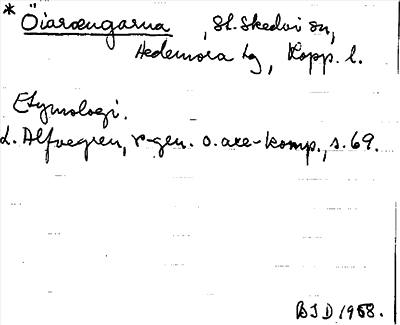 * Öiaraengarna, St. Skedvi sn,
Hedemora tg, Kopp. l.
Etymologi.
L. Alfvegren, r-gen. o. are-komp., s. 69.
BJD 1958.